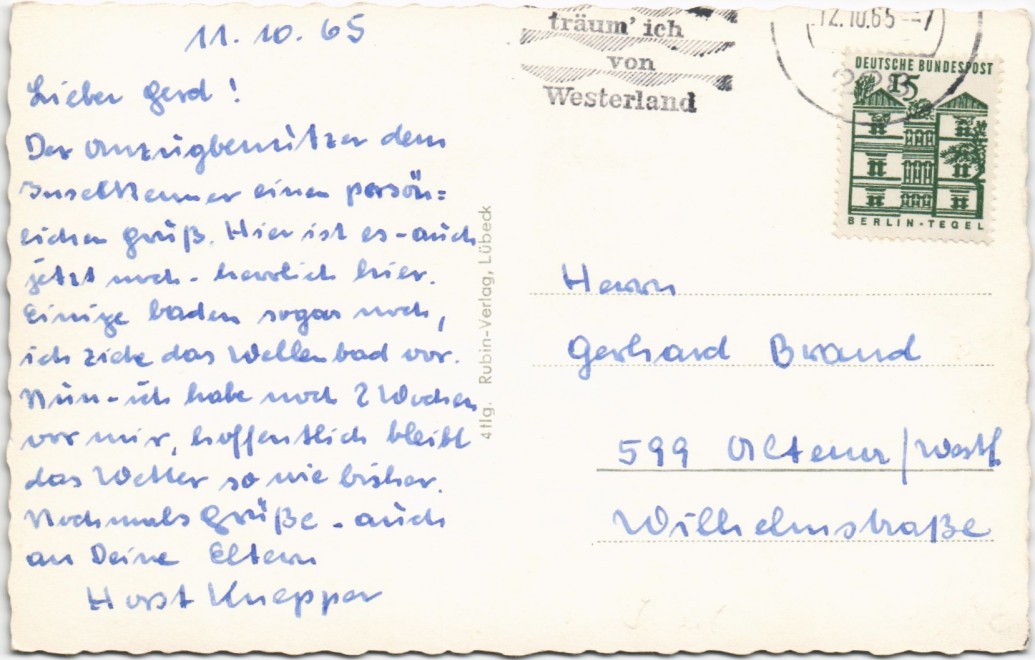 11.10.65
Lieber Gerd!
Der Anzugbenützer dem
Inselkenner einen persön=
lichen Gruß. Hier ist es - auch
jetzt noch - herrlich hier.
Einige baden sogar noch,
ich ziehe das Wellenbad vor.
Nun - ich habe noch 2 Wochen
vor mir, hoffentlich bleibt
das Wetter so wie bisher.
Nochmals Grüße - auch
an Deine Eltern
Horst Knepper
4tlg. Rubin-Verlag, Lübeck
träum' ich
von
Westerland
12.10.65--7
DEUTSCHE BUNDESPOST
15
BERLIN-TEGEL
Herrn
Gerhard Brand
599 Altena/Westf.
Wilhelmstraße